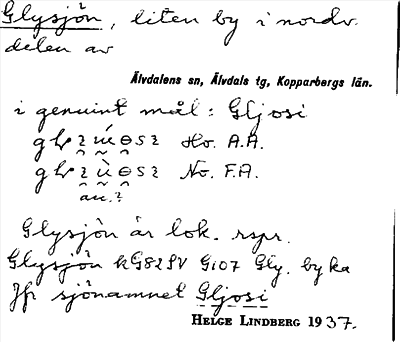 Glysjön, liten by i nordv.
delen av
Älvdalens sn, Älvdals tg, Kopparbergs län.
i genuint mål: Gljosi
Ho. A.A.
No. F.A.
an.?
Glysjön är lok. rspr.
Glysjön kG82SV G107 Gly. by ka
Jfr sjönamnet Gljosi
HELGE LINDBERG 1937.